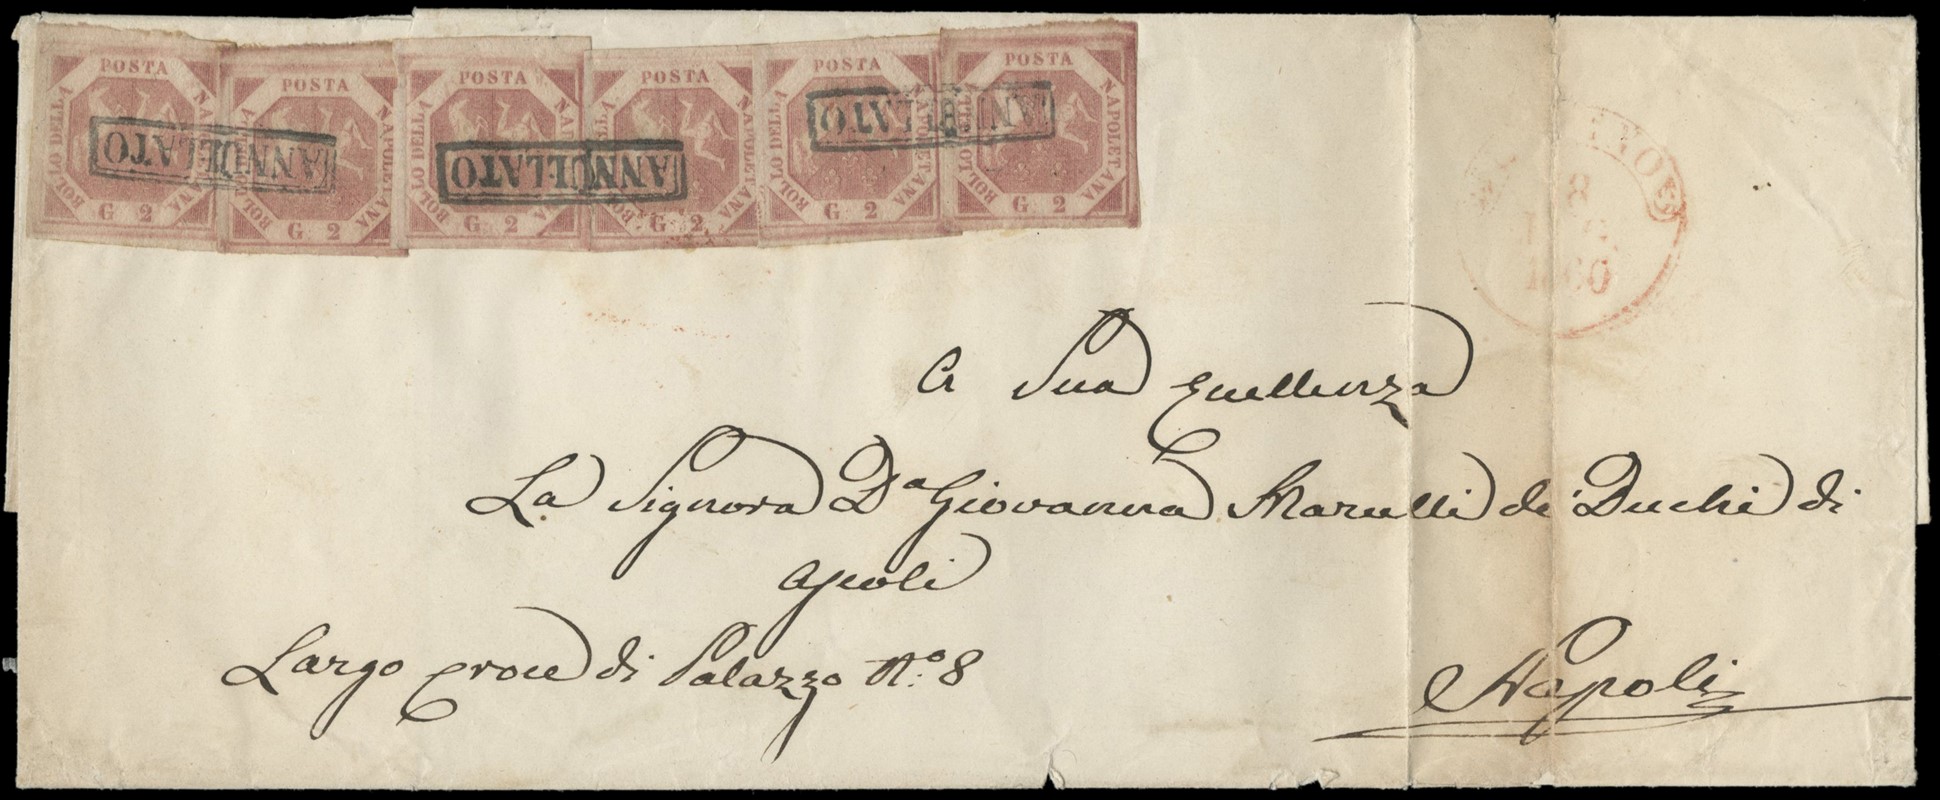 POSTA NA BOLLO DELLA G 2
POSTA NAPOLETANA BOL G 2
POSTA NAP BOLLO DELLA G 2
POSTA NAPOLETANA BOLLO DELLA G 2
POSTA NAPOLETANA BOLLO DELLA G 2
POSTA NAPOLETANA BOLLO G 2
ANNULLATO
ANNULLATO
ANNULLATO
8
1860
A Sua Eccellenza
La Signora Da Giovanna Marulli de' Duchi di
Ascoli
Largo Croce di Palazzo No: 8
Napoli